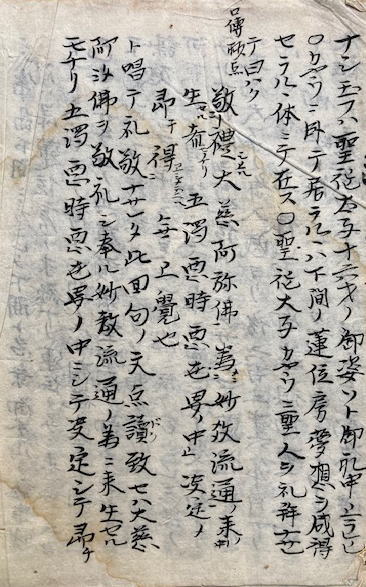 ナシ玉フハ聖徳太子十六才ノ御姿ソト御示申上ラレ
〇カヤウニ舟テ居ラルヽハ下間ノ蓮位房夢想ヲ感得
セラルヽ体ニテ在ス〇聖徳太子カヤウニ聖人ヲ礼拜ナサレ
テ曰ハク
口傳砂点
敬禮大慈阿弥佛為妙教流通ノ来
生者五濁悪時悪世界ノ中決定ノ
即チ得無上覺也
ト唱テ礼敬ナサレタ此四句ノ文点讀致セハ大慈
阿弥佛ヲ敬礼シ奉ル妙教流通ノ為ニ来生セル
モナリ五濁悪時悪世界ノ中ニシテ決定シテ即チ